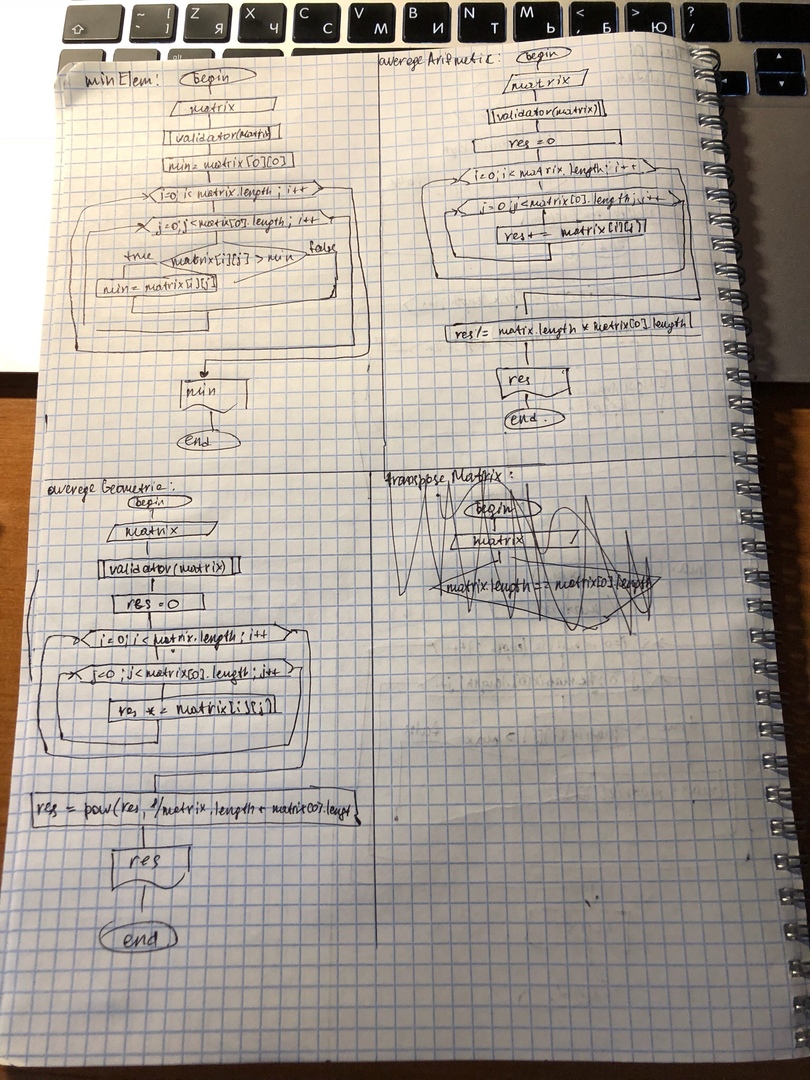 ~ [
` ]
Z Я
X Ч
C С
V М
B И
N Т
M Ь
< , Б
> . Ю
? /
minElem:
begin
matrix
validator(matrix)
min = matrix[0][0]
i=0; i<matrix.length; i++
j=0; j<matrix[0].length; j++
true
matrix[i][j] > min
false
min = matrix[i][j]
min
end
averege Arifmetic:
begin
matrix
validator(matrix)
res = 0
i=0; i<matrix.length; i++
j=0; j<matrix[0].length; j++
res += matrix[i][j]
res /= matix.length * matrix[0].length
res
end.
averege Geometric:
begin
matrix
validator(matrix)
res = 0
i=0; i<matrix.length; i++
j=0; j<matrix[0].length; j++
res *= matrix[i][j]
res = pow(res, 1/matrix.length * matrix[0].lengt
res
end
transpose Matrix:
begin
matrix
matrix.length == matrix[0].length